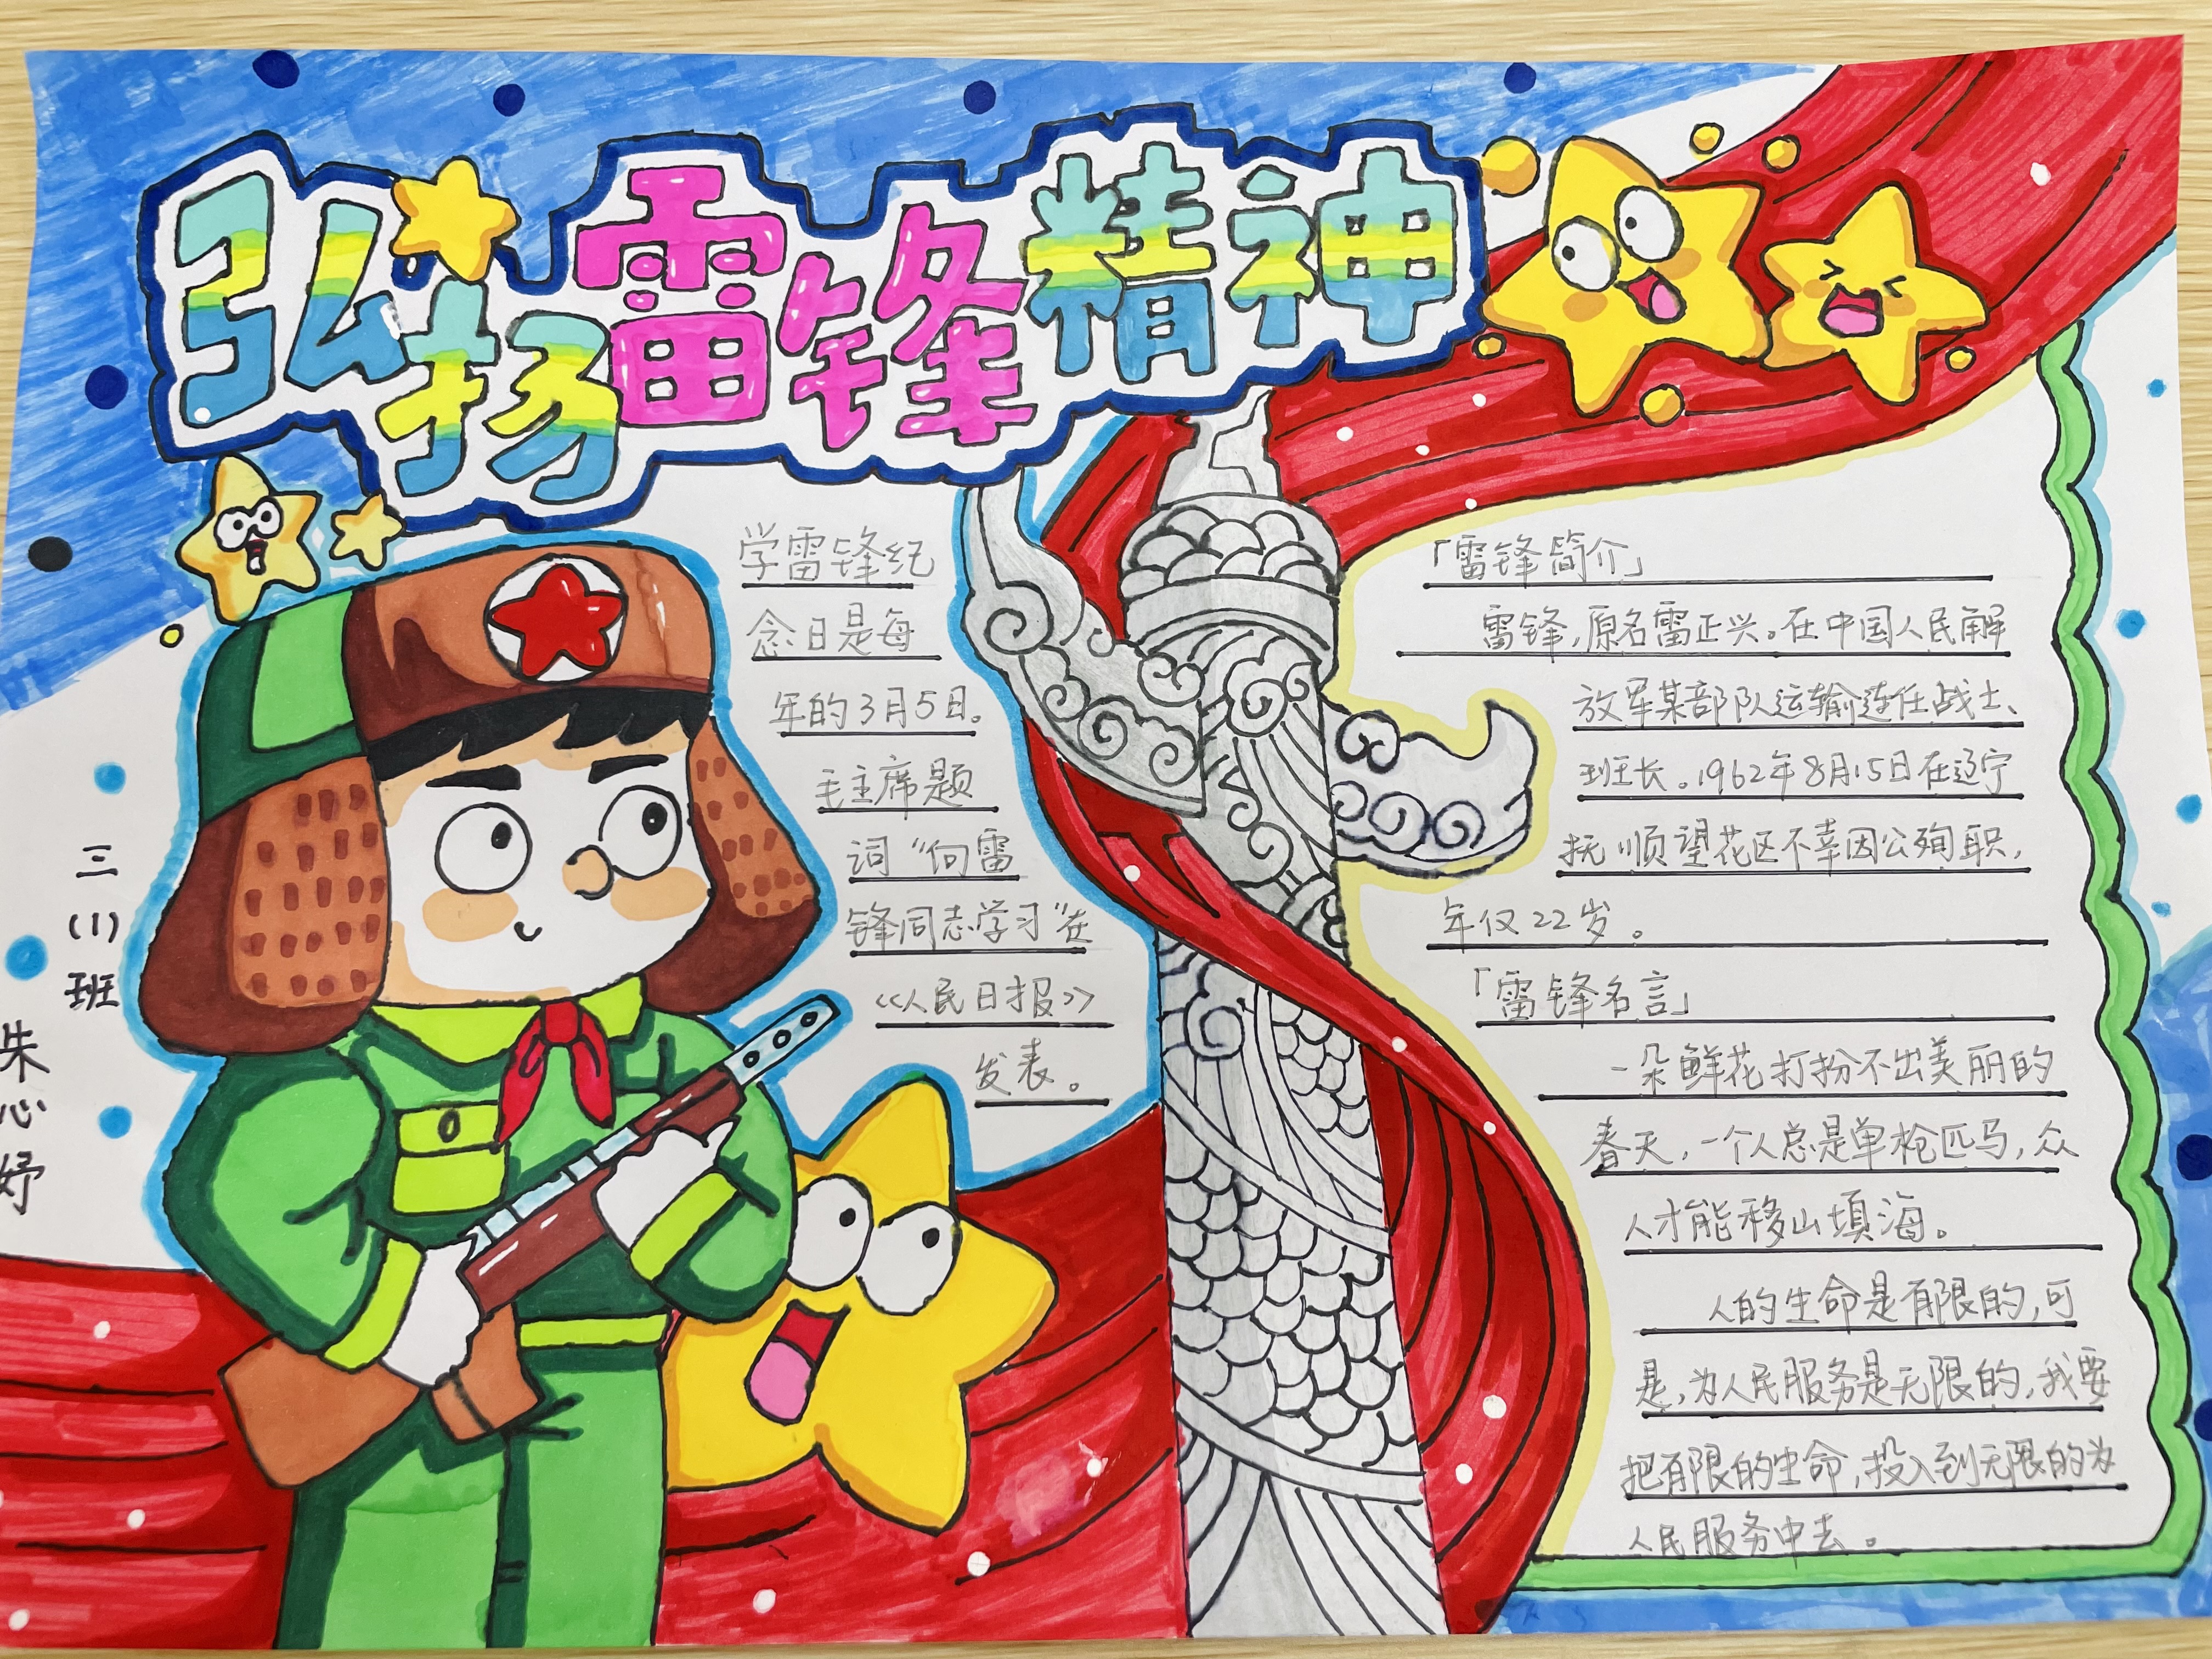 弘扬雷锋精神
学雷锋纪
念日是每
年的3月5日。
毛主席题
词“向雷
锋同志学习”在
《人民日报》
发表。
三(1)班
朱心妤
「雷锋简介」
雷锋，原名雷正兴。在中国人民解
放军某部队运输连任战士、
班长。1962年8月15日在辽宁
抚顺望花区不幸因公殉职，
年仅22岁。
「雷锋名言」
一朵鲜花打扮不出美丽的
春天，一个人总是单枪匹马，众
人才能移山填海。
人的生命是有限的，可
是，为人民服务是无限的，我要
把有限的生命，投入到无限的为
人民服务中去。